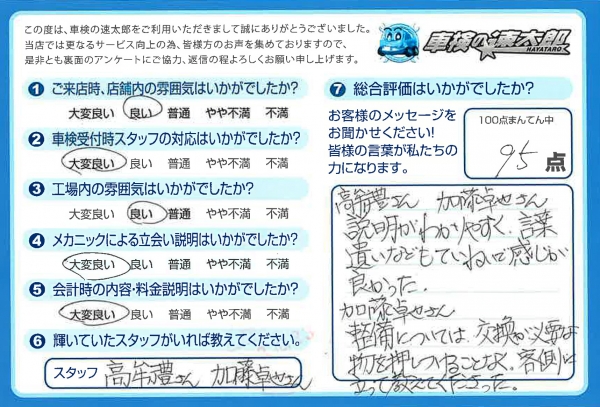 この度は、車検の速太郎をご利用いただきまして誠にありがとうございました。
当店では更なるサービス向上の為、皆様方のお声を集めておりますので、
是非とも裏面のアンケートにご協力、返信の程よろしくお願い申し上げます。
車検の速太郎
HAYATARO
1 ご来店時、店舗内の雰囲気はいかがでしたか?
大変良い 良い 普通 やや不満 不満
2 車検受付時スタッフの対応はいかがでしたか?
大変良い 良い 普通 やや不満 不満
3 工場内の雰囲気はいかがでしたか?
大変良い 良い 普通 やや不満 不満
4 メカニックによる立会い説明はいかがでしたか?
大変良い 良い 普通 やや不満 不満
5 会計時の内容・料金説明はいかがでしたか?
大変良い 良い 普通 やや不満 不満
6 輝いていたスタッフがいれば教えてください。
スタッフ 高牟禮さん 加藤卓也さん
7 総合評価はいかがでしたか?
お客様のメッセージを
お聞かせください!
皆様の言葉が私たちの
力になります。
100点まんてん中
95 点
高牟禮さん 加藤卓也さん
説明がわかりやすく、言葉
遣いなどもていねいで感じが
良かった。
加藤卓也さん
整備については、交換が必要な
物を押しつけることなく、客側に
立って教えてくださった。